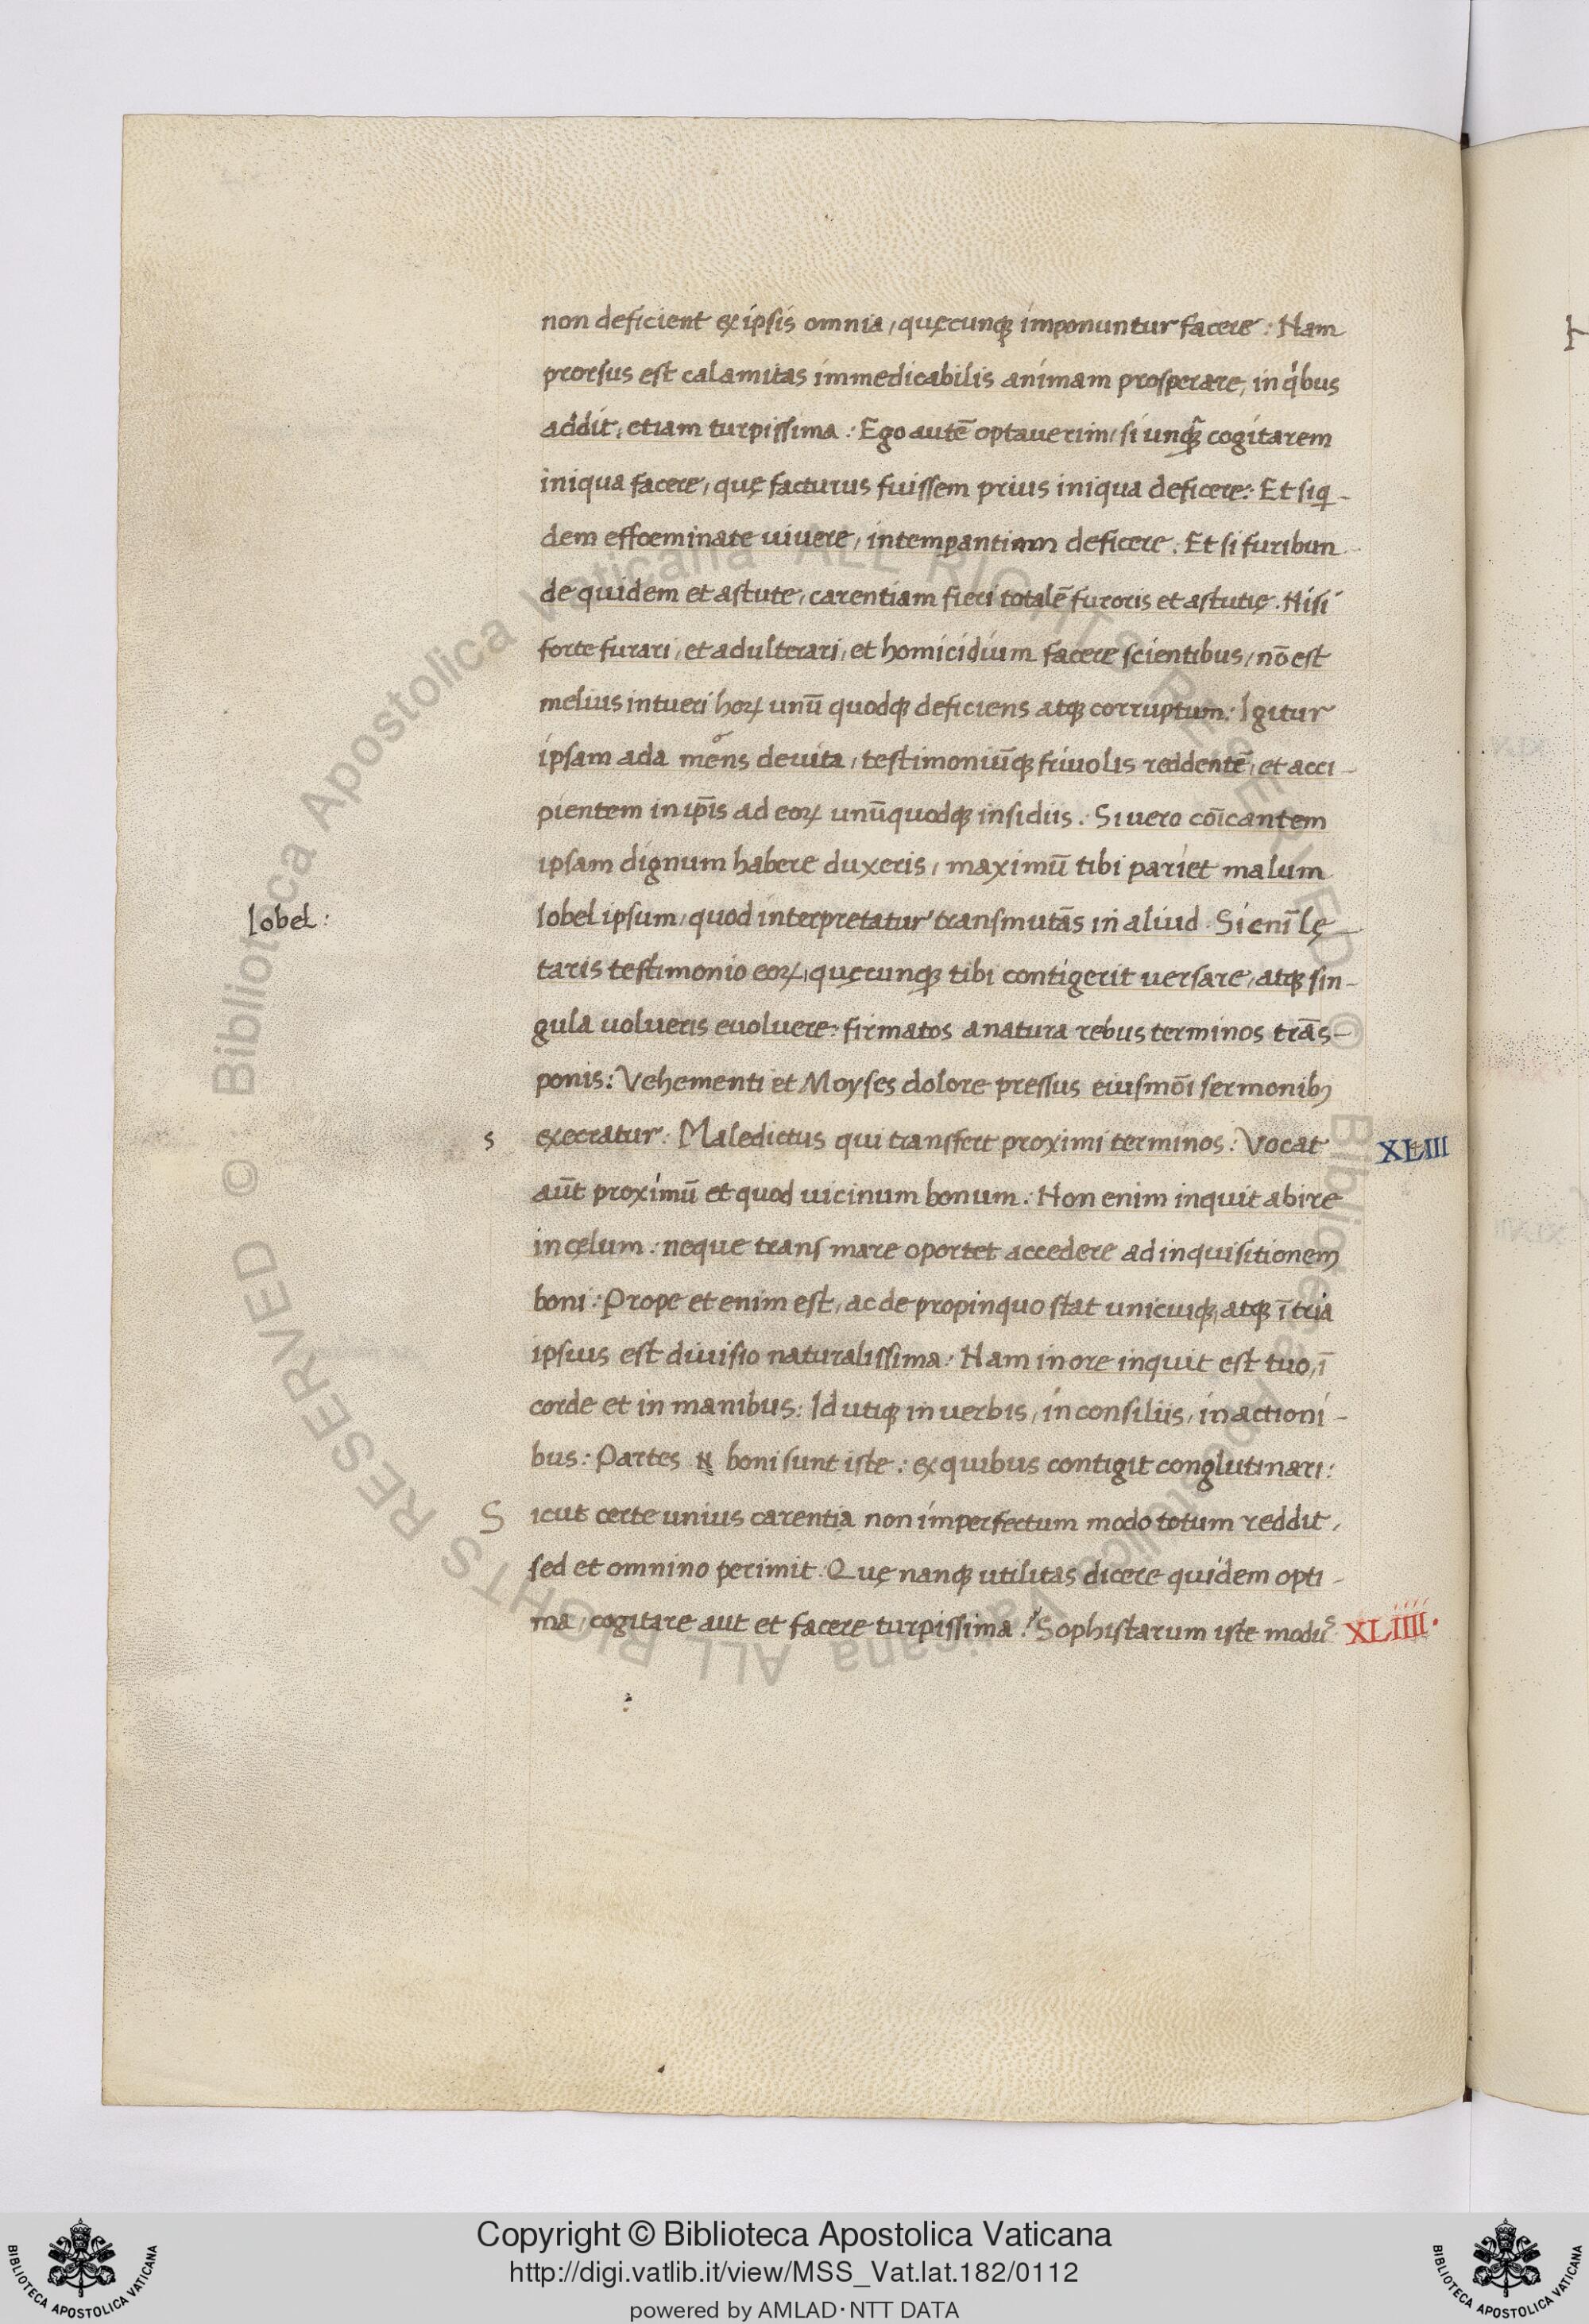 non deficient ex ipsis omnia, quęcunqꝫ imponuntur facere: Nam
prorsus est calamitas immedicabilis animam prosperare, in qͥbus
addit, etiam turpissima: Ego autē optauerim, si unqꝫ̃ cogitarem
iniqua facere, quę facturus fuissem prius iniqua deficere: Et siq̃-
dem effoeminate uiuere, intemꝑantiam deficere. Et si furibun
de quidem et astute, carentiam fieri totalē furoris et astutię. Nisi
forte furari, et adulterari, et homicidium facere scientibus, nō est
melius intueri hoꝝ unū quodqꝫ deficiens atqꝫ corruptum: Igitur
ipsam ada mēns deuita, testimoniūqꝫ friuolis reddentē, et acci-
pientem in ip̄is ad eoꝝ unūquodqꝫ insidiis. Si uero cōicantem
ipsam dignum habere duxeris, maximū tibi pariet malum
Iobel:
Iobel ipsum, quod interpretatur transmutās in aliud. Si enī lę
taris testimonio eoꝝ, quęcunqꝫ tibi contigerit uersare, atqꝫ sin-
gula uolueris euoluere: firmatos a natura rebus terminos trās-
ponis: Vehementi et Moyses dolore pressus eiusmōi sermonibꝫ
s execratur: Maledictus qui transfert proximi terminos: Vocat XLIII
aūt proximū et quod uicinum bonum: Non enim inquit abire
in cęlum: neque trans mare oportet accedere ad inquisitionem
boni: Prope et enim est, ac de propinquo stat unicuiqꝫ, atqꝫ ī tria
ipsius est diuisio naturalissima: Nam in ore inquit est tuo, ī
corde et in manibus: Id utiqꝫ in uerbis, in consiliis, in actioni-
bus: Partes boni sunt iste: ex quibus contigit conglutinari:
S icut certe unius carentia non imperfectum modo totum reddit,
sed et omnino perimit. Quę nanqꝫ utilitas dicere quidem opti-
ma, cogitare aut et facere turpissima? Sophistarum iste modus XLIIII.
Copyright © Biblioteca Apostolica Vaticana
http://digi.vatlib.it/view/MSS_Vat.lat.182/0112
powered by AMLAD·NTT DATA